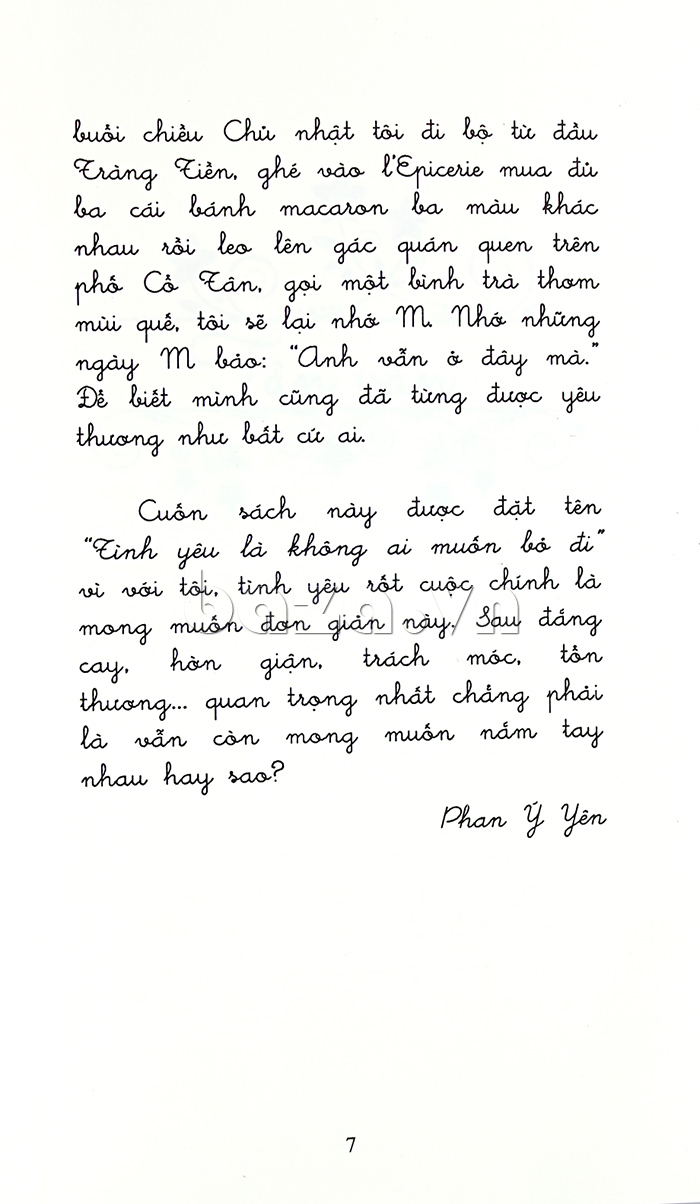 buổi chiều Chủ nhật tôi đi bộ từ đầu
Tràng Tiền, ghé vào l'Epicerie mua đủ
ba cái bánh macaron ba màu khác
nhau rồi leo lên gác quán quen trên
phố Cổ Tân, gọi một bình trà thơm
mùi quế, tôi sẽ lại nhớ M. Nhớ những
ngày M bảo: "Anh vẫn ở đây mà."
Để biết mình cũng đã từng được yêu
thương như bất cứ ai.
Cuốn sách này được đặt tên
"Tình yêu là không ai muốn bỏ đi"
vì với tôi, tình yêu rốt cuộc chính là
mong muốn đơn giản này. Sau đắng
cay, hờn giận, trách móc, tổn
thương... quan trọng nhất chẳng phải
là vẫn còn mong muốn nắm tay
nhau hay sao?
Phan Ý Yên
baza.vn
7